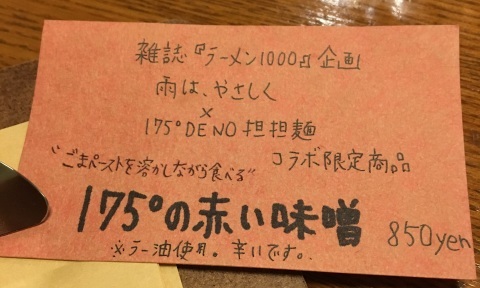 雑誌『ラーメン1000』企画
雨は、やさしく
×
175°DENO担担麺
コラボ限定商品
"ごまペーストを溶かしながら食べる"
175°の赤い味噌 850yen
※ラー油使用。辛いです。